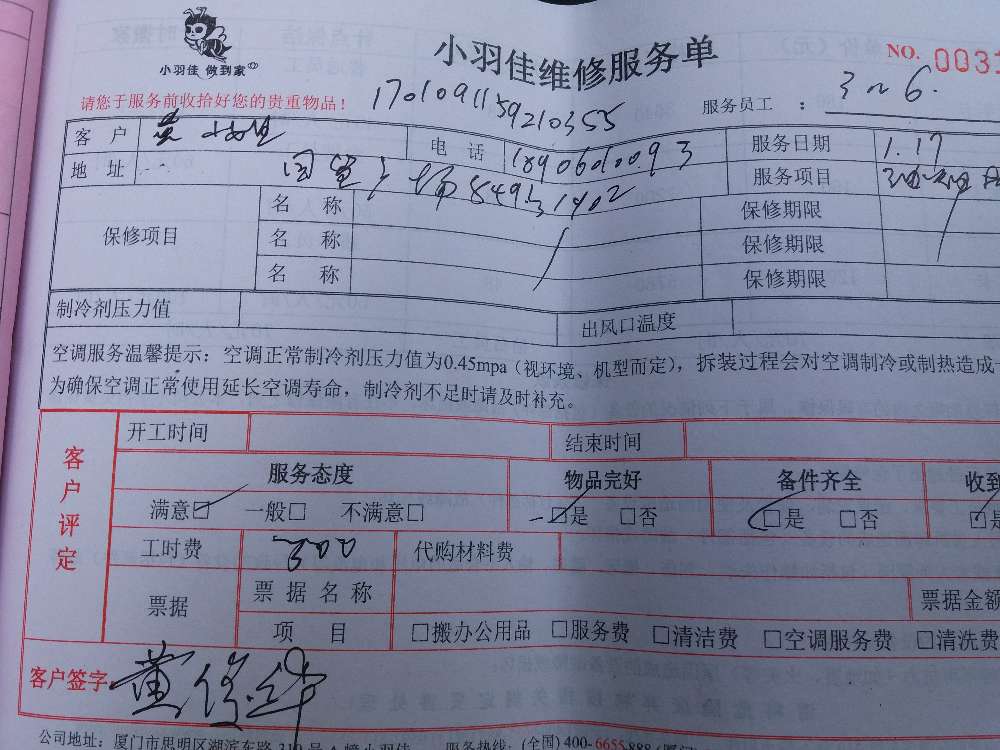 小羽佳维修服务单
NO. 0031
小羽佳 做到家
请您于服务前收拾好您的贵重物品！ 1701091159210355 服务员工 ： 3 6.
客 户 黄 电 话 18906010093 服务日期 1.17
地 址 服务项目
保修项目 名 称 保修期限
名 称 保修期限
名 称 保修期限
制冷剂压力值 出风口温度
空调服务温馨提示：空调正常制冷剂压力值为0.45mpa（视环境、机型而定），拆装过程会对空调制冷或制热造成
为确保空调正常使用延长空调寿命，制冷剂不足时请及时补充。
客户评定
开工时间 结束时间
服务态度 物品完好 备件齐全 收到
满意□ 一般□ 不满意□ □是 □否 □是 □否 □是
工时费 300 代购材料费
票据 票 据 名 称 票据金额
项 目 □搬办公用品 □服务费 □清洁费 □空调服务费 □清洗费
客户签字: 黄
公司地址：厦门市思明区湖滨东路 319号A幢小羽佳 服务热线：(全国) 400-6655888 (厦门